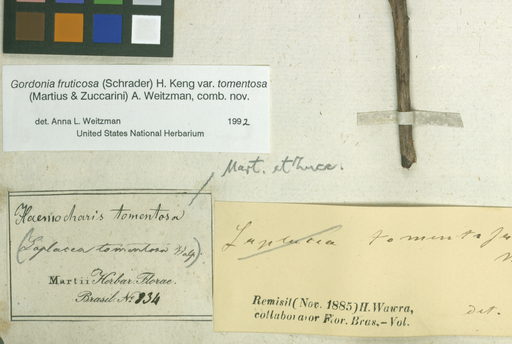 Gordonia fruticosa (Schrader) H. Keng var. tomentosa
(Martius & Zuccarini) A. Weitzman, comb. nov.
det. Anna L. Weitzman 1992
United States National Herbarium
Mart. et Zucc.
Haemocharis tomentosa
(Laplacea tomentosa Walp.)
Martii Herbar. Florae
Brasil. No. 834
Laplacea tomentosa
Remisit (Nov. 1885) H. Wawra,
collaborator Flor. Bras. - Vol.
det.